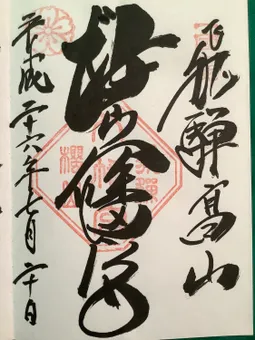 飛騨高山
桜山八幡宮
平成二十六年七月二十日